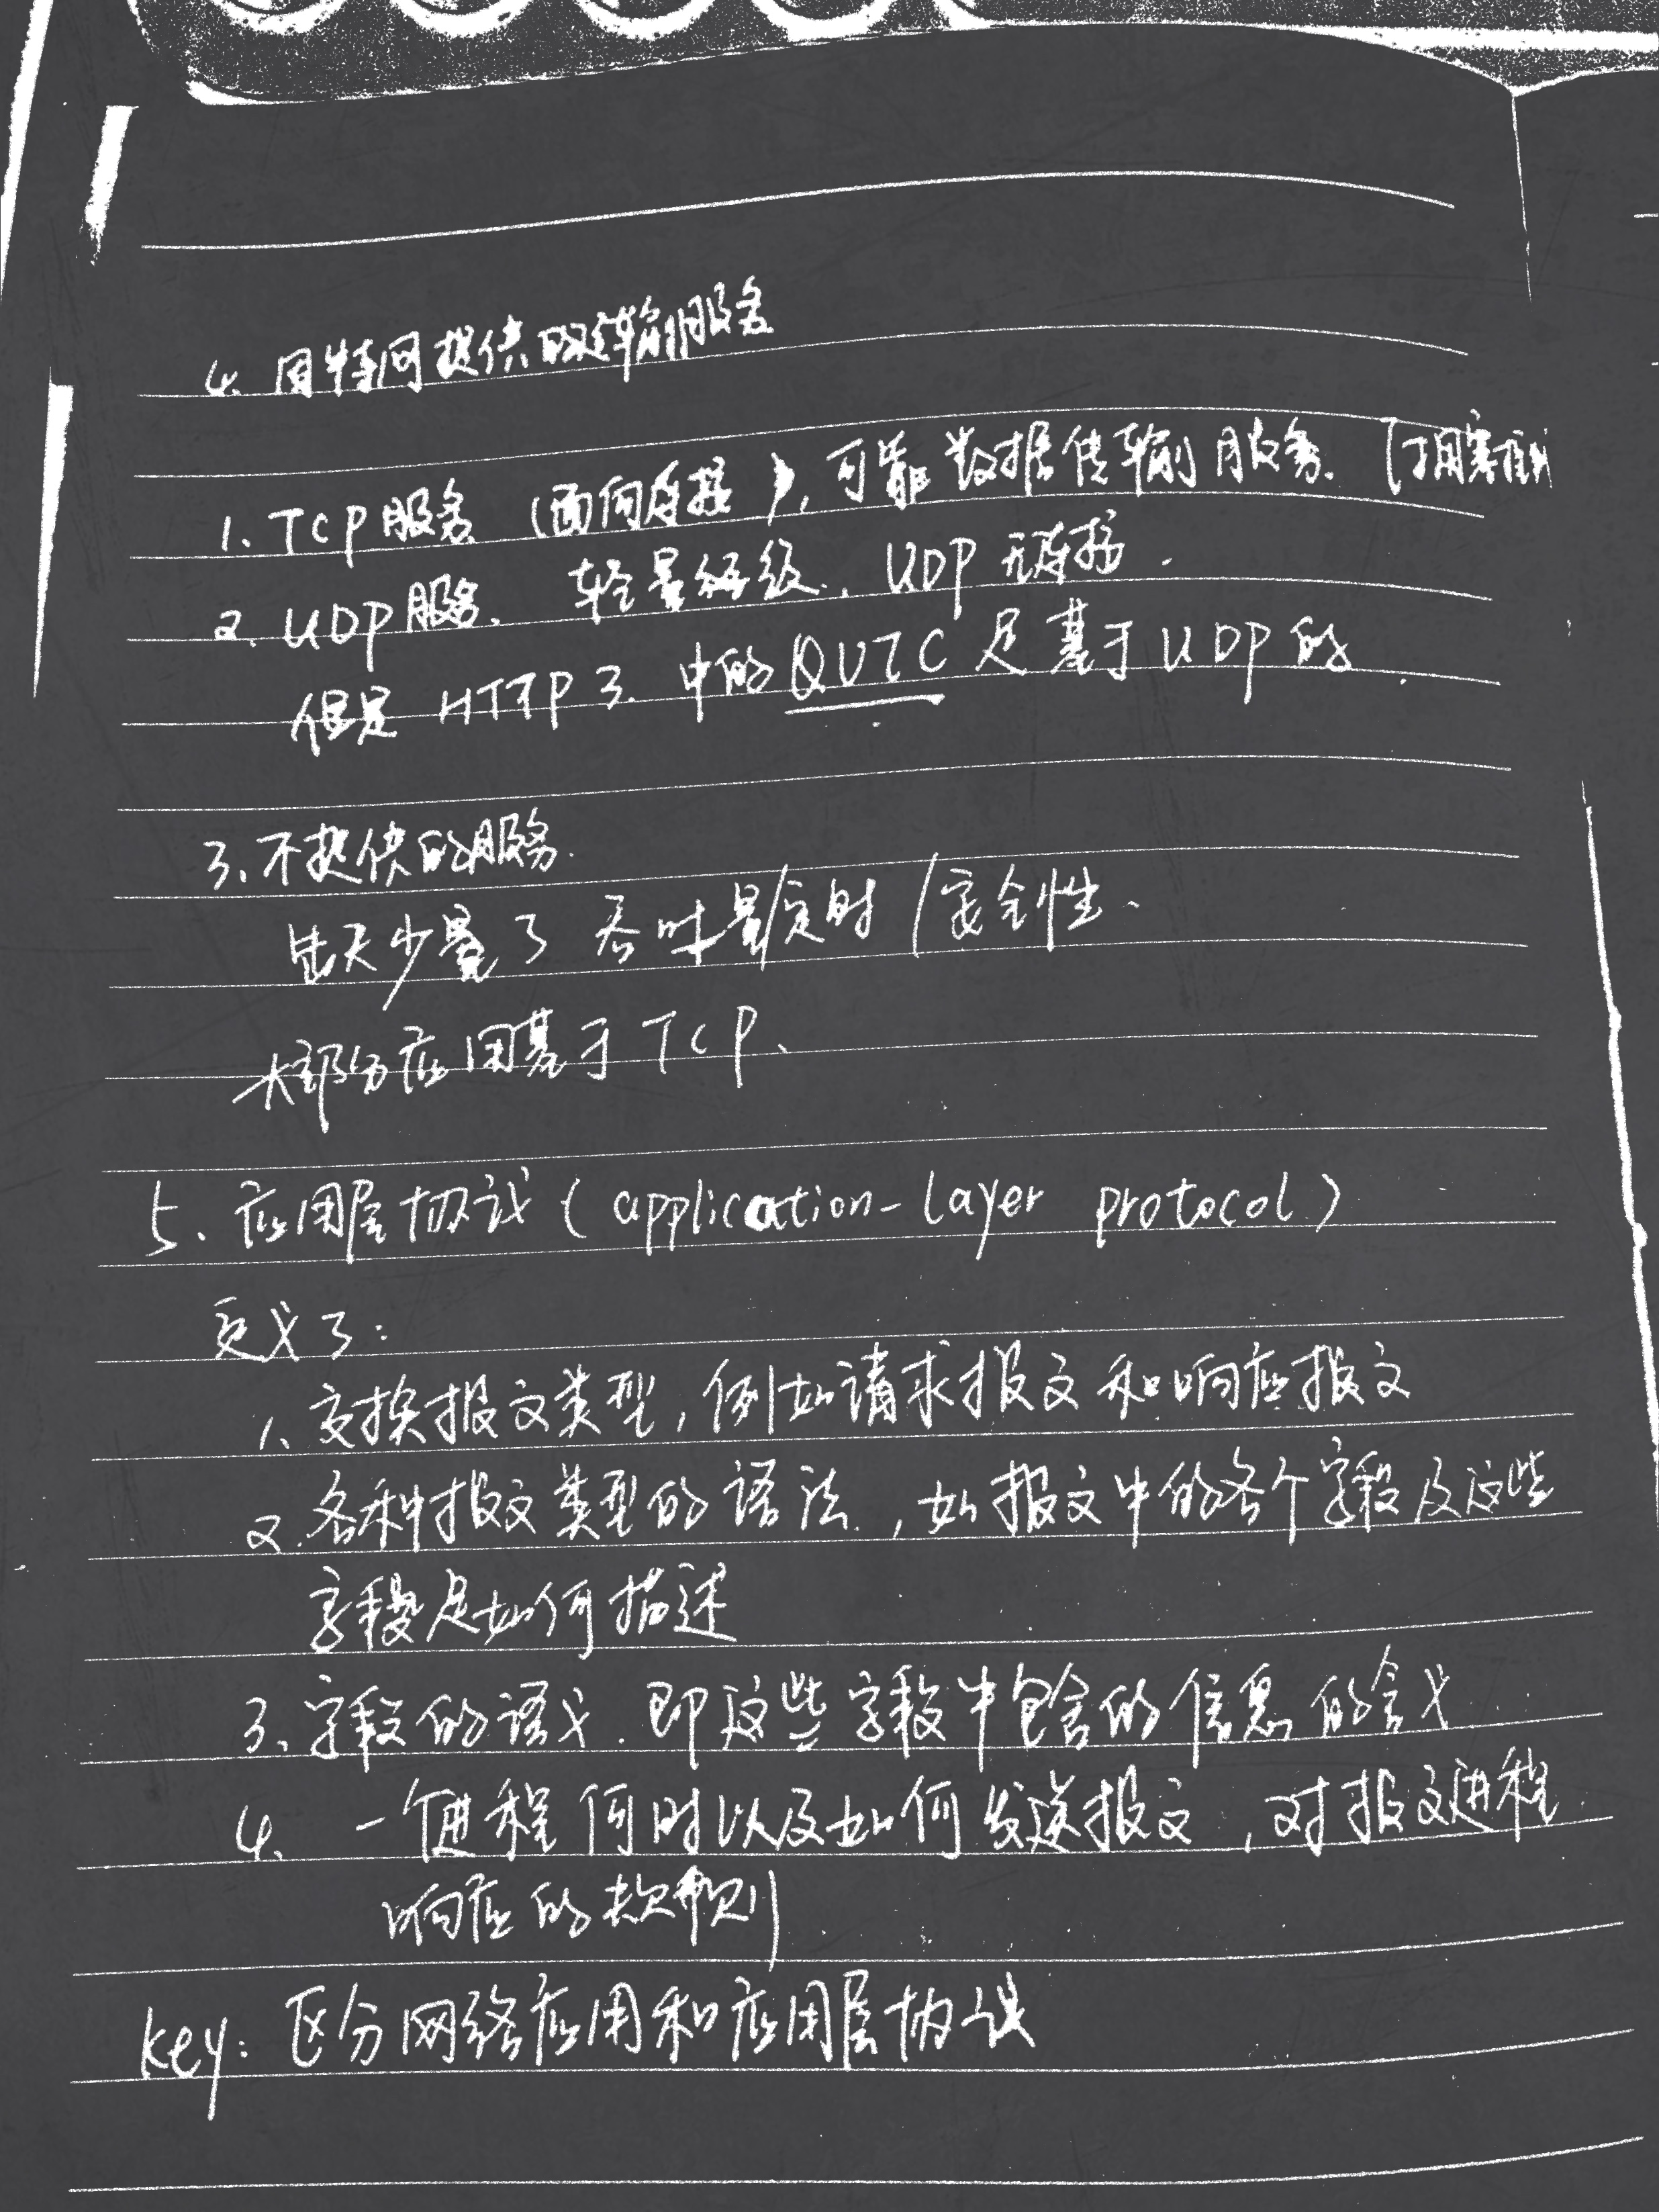 4. 因特网提供的运输服务
1. TCP服务 (面向连接), 可靠数据传输服务. [拥塞控制
2. UDP服务. 轻量级. UDP 无连接.
但是 HTTP 3. 中的 QUIC 是基于 UDP 的.
3. 不提供的服务.
缺少 了 吞吐量/定时/安全性.
大部分应用基于 TCP.
5. 应用层协议 (application-layer protocol)
定义了:
1. 交换报文类型, 例如请求报文和响应报文
2. 各种报文类型的语法, 如报文中的各个字段及这些
字段是如何描述
3. 字段的语义. 即这些字段中包含的信息的含义
4. 一个进程何时以及如何发送报文, 对报文进程
响应的规则
key: 区分网络应用和应用层协议